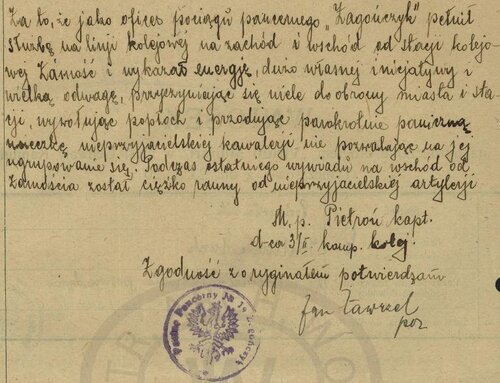 Za to, że jako oficer pociągu pancernego „Zagończyk" pełnił
służbę na linji kolejowej na zachód i wschód od stacji kolejo
wej Zamość i wykazał energję, dużo własnej inicjatywy i
wielką odwagę, przyczyniając się wiele do obrony miasta i sta
cji, wywołując popłoch i parokrotnie paniczną
ucieczkę nieprzyjacielskiej kawalerji nie pozwalając na jej
ugrupowanie się. Podczas ostatniego wywiadu na wschód od
Zamościa został ciężko ranny od nieprzyjacielskiej artylerji
M. p. Pietroń kapt.
d-ca 3/II komp. kolej.
Zgodność z oryginałem potwierdzam
Jan Ławrzel
por
Pociąg Pancerny № 14 Zagończyk